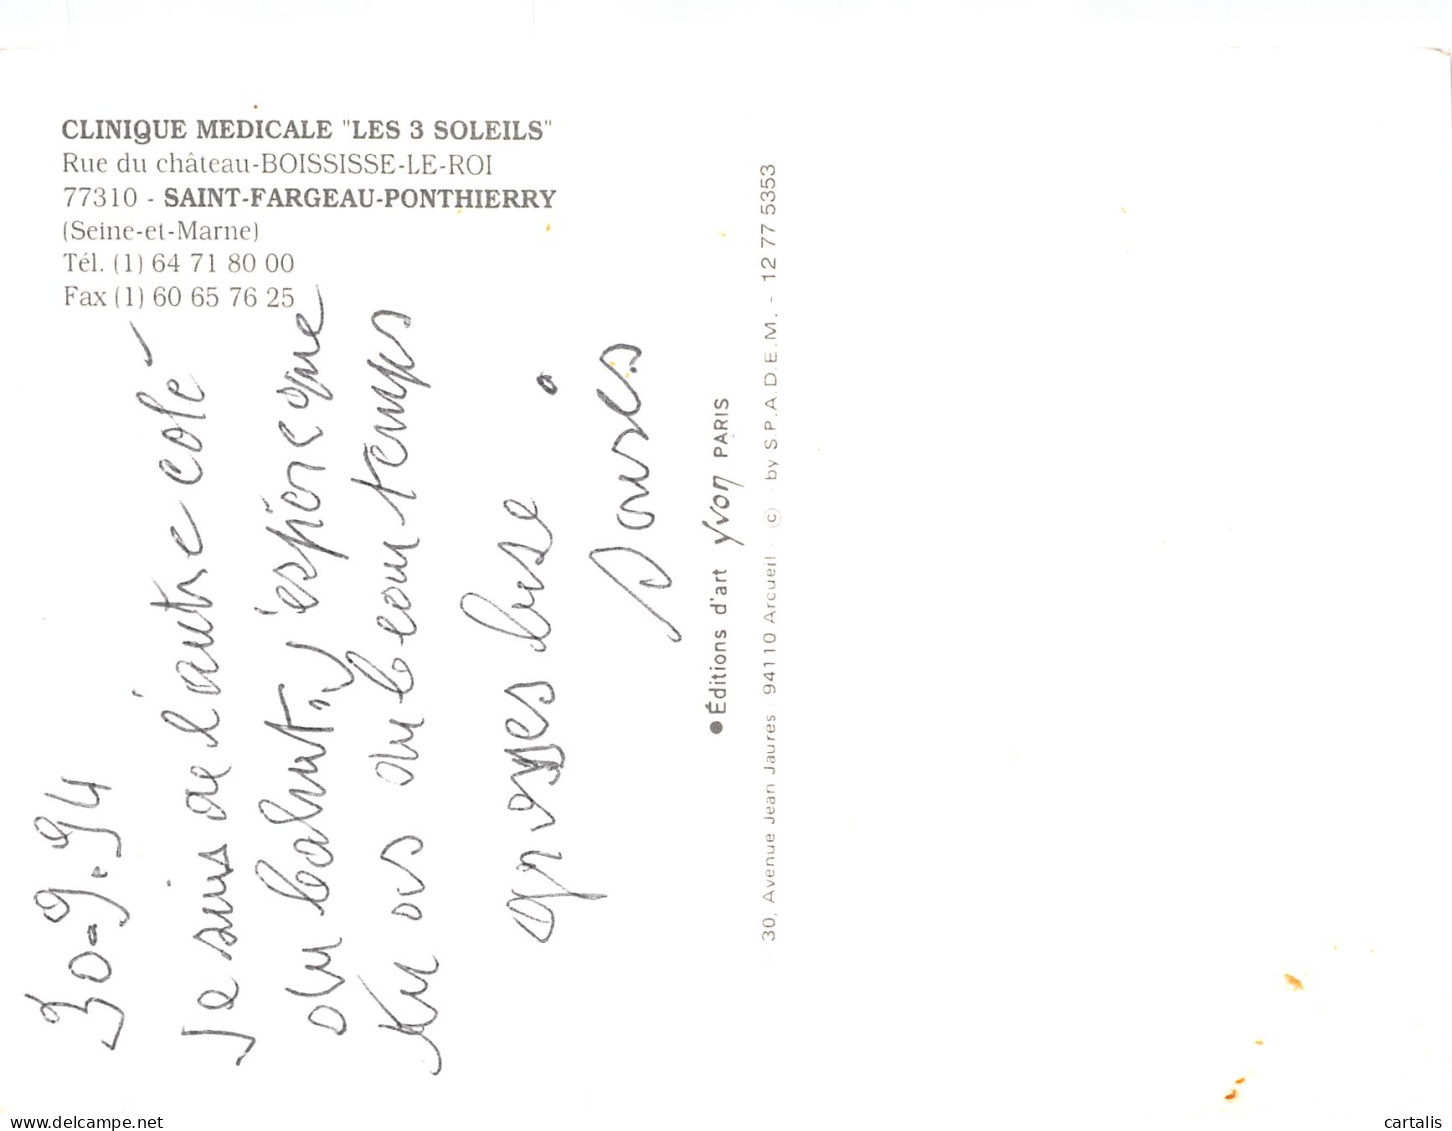 CLINIQUE MEDICALE "LES 3 SOLEILS"
Rue du château-BOISSISSE-LE-ROI
77310 - SAINT-FARGEAU-PONTHIERRY
(Seine-et-Marne)
Tél. (1) 64 71 80 00
Fax (1) 60 65 76 25
30-9.94
Je suis de l'autre colé
du batiment, j'espère que
tu as du beau temps
grosses bise.
●Éditions d'art yvon PARIS
30, Avenue Jean Jaures - 94110 Arcueil - © - by S.P.A.D.E.M. - 12 77 5353
cartalis